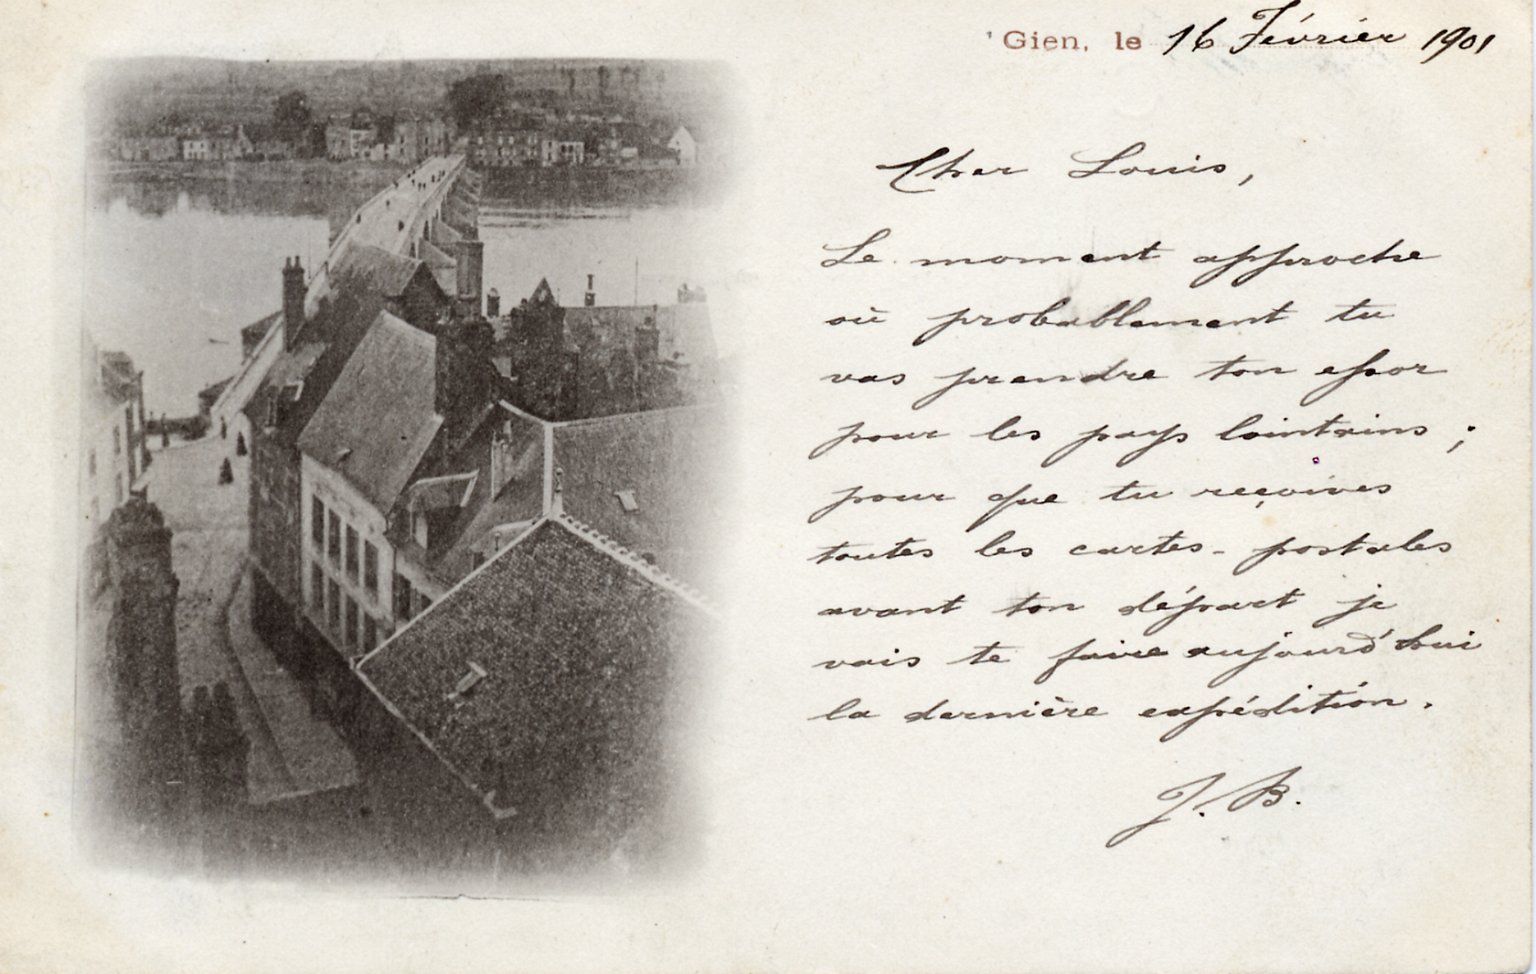 Gien, le 16 Février 1901
Cher Louis,
Le moment approche
où probablement tu
vas prendre ton essor
pour les pays lointains ;
pour que tu reçoives
toutes les cartes-postales
avant ton départ je
vais te faire aujourd'hui
la dernière expédition.
J. B.